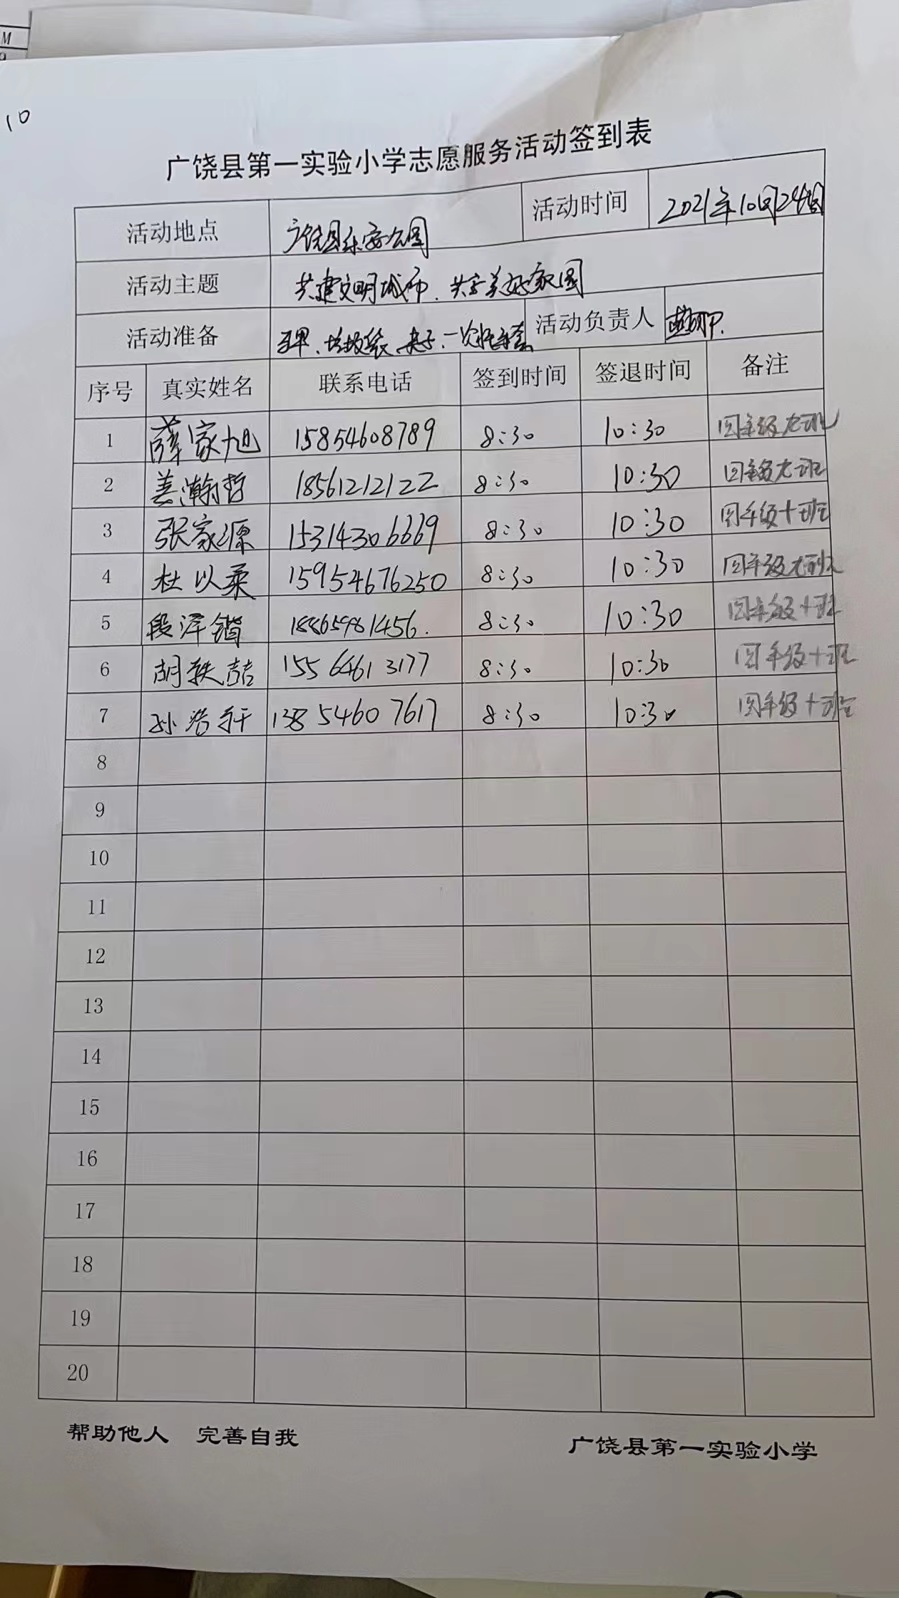 10
广饶县第一实验小学志愿服务活动签到表
活动地点 广饶县乐安公园 活动时间 2021年10月24日
活动主题 共建文明城市、共享美好家园
活动准备 垃圾袋、夹子、一次性手套 活动负责人
序号 真实姓名 联系电话 签到时间 签退时间 备注
1 薛家旭 15854608789 8:30 10:30 四年级七班
2 姜瀚哲 18561212122 8:30 10:30 四年级七班
3 张家源 15314306669 8:30 10:30 四年级十班
4 杜以柔 15954676250 8:30 10:30 四年级七班
5 段泽锴 18865981456. 8:30 10:30 四年级十班
6 胡轶喆 15564613177 8:30 10:30 四年级十班
7 孙浩轩 13854607617 8:30 10:30 四年级十班
8
9
10
11
12
13
14
15
16
17
18
19
20
帮助他人 完善自我 广饶县第一实验小学